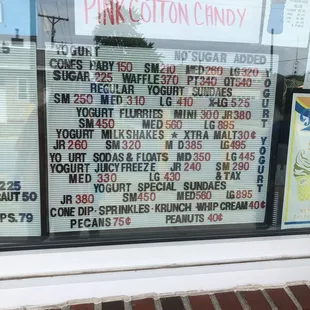 PINK COTTON CANDY
YOGURT NO SUGAR ADDED
CONES BABY 150 SM 210 MED 260 LG 320
SUGAR 225 WAFFLE 370 PT 240 QT 540
REGULAR YOGURT SUNDAES
SM 250 MED 310 LG 410 X-LG 525
YOGURT FLURRIES MINI 300 JR 380
SM 450 MED 560 LG 895
YOGURT MILKSHAKES ★ XTRA MALT 30¢
JR 260 SM 320 M D 385 LG 495
YO URT SODAS & FLOATS MD 350 LG 445
YOGURT JUICY FREEZE JR 240 SM 290
MED 330 LG 430 & TAX
YOGURT SPECIAL SUNDAES
JR 380 SM 450 MED 580 LG 895
CONE DIP - SPRINKLES - KRUNCH - WHIP CREAM 40¢
PECANS 75¢ PEANUTS 40¢
YOGURT YOGURT
225
AUT 50
PS. 79